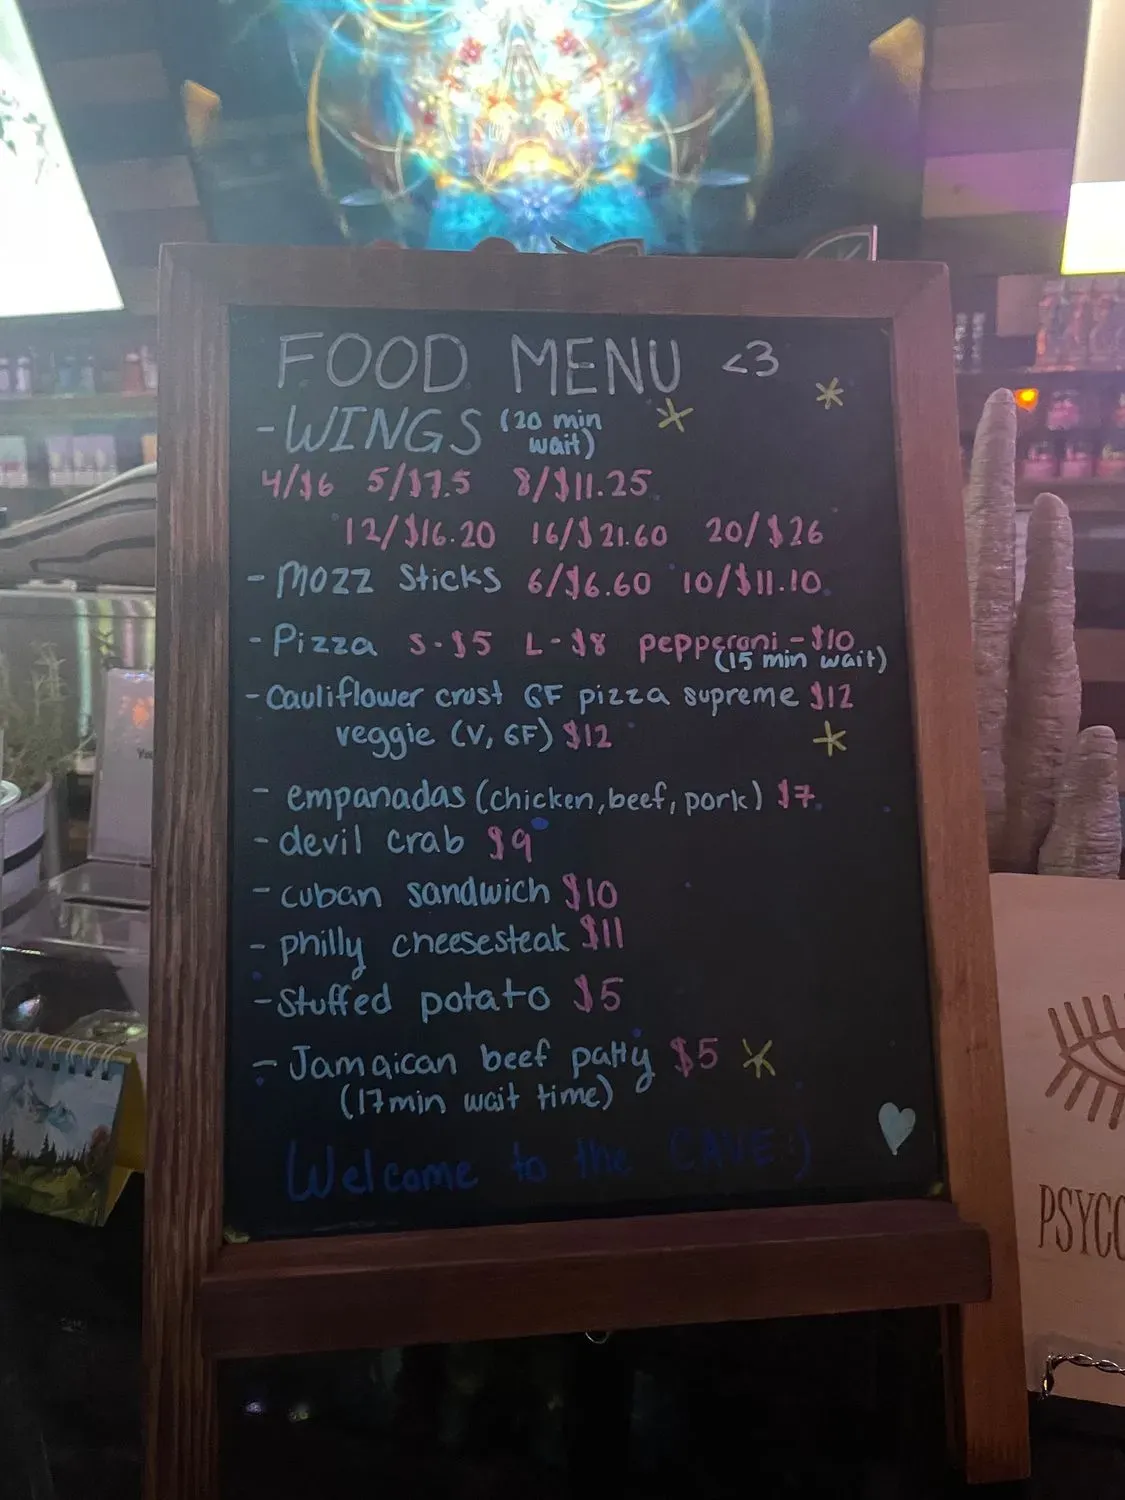 FOOD MENU <3
- WINGS (20 min
wait)
4/$6 5/$7.5 8/$11.25
12/$16.20 16/$21.60 20/$26
- Mozz Sticks 6/$6.60 10/$11.10
- Pizza S-$5 L-$8 pepperoni-$10
(15 min wait)
- Cauliflower crust GF pizza supreme $12
veggie (V, GF) $12
- empanadas (chicken, beef, pork) $7
- devil crab $9
- cuban sandwich $10
- philly cheesesteak $11
- Stuffed potato $5
- Jamaican beef patty $5
(17min wait time)
Welcome to the CAVE :)
PSYCO